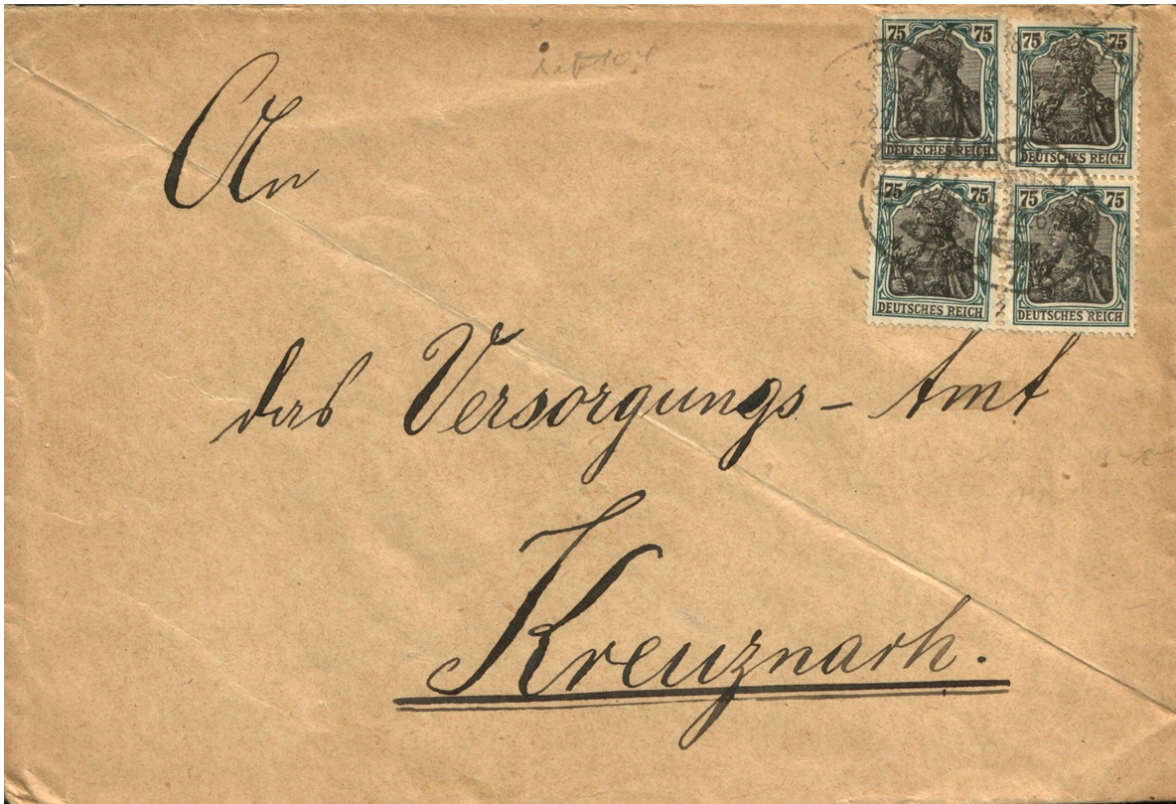 75 75 75 75
DEUTSCHES REICH DEUTSCHES REICH
75 75 75 75
DEUTSCHES REICH DEUTSCHES REICH
An
das Versorgungs-Amt
Kreuznach.